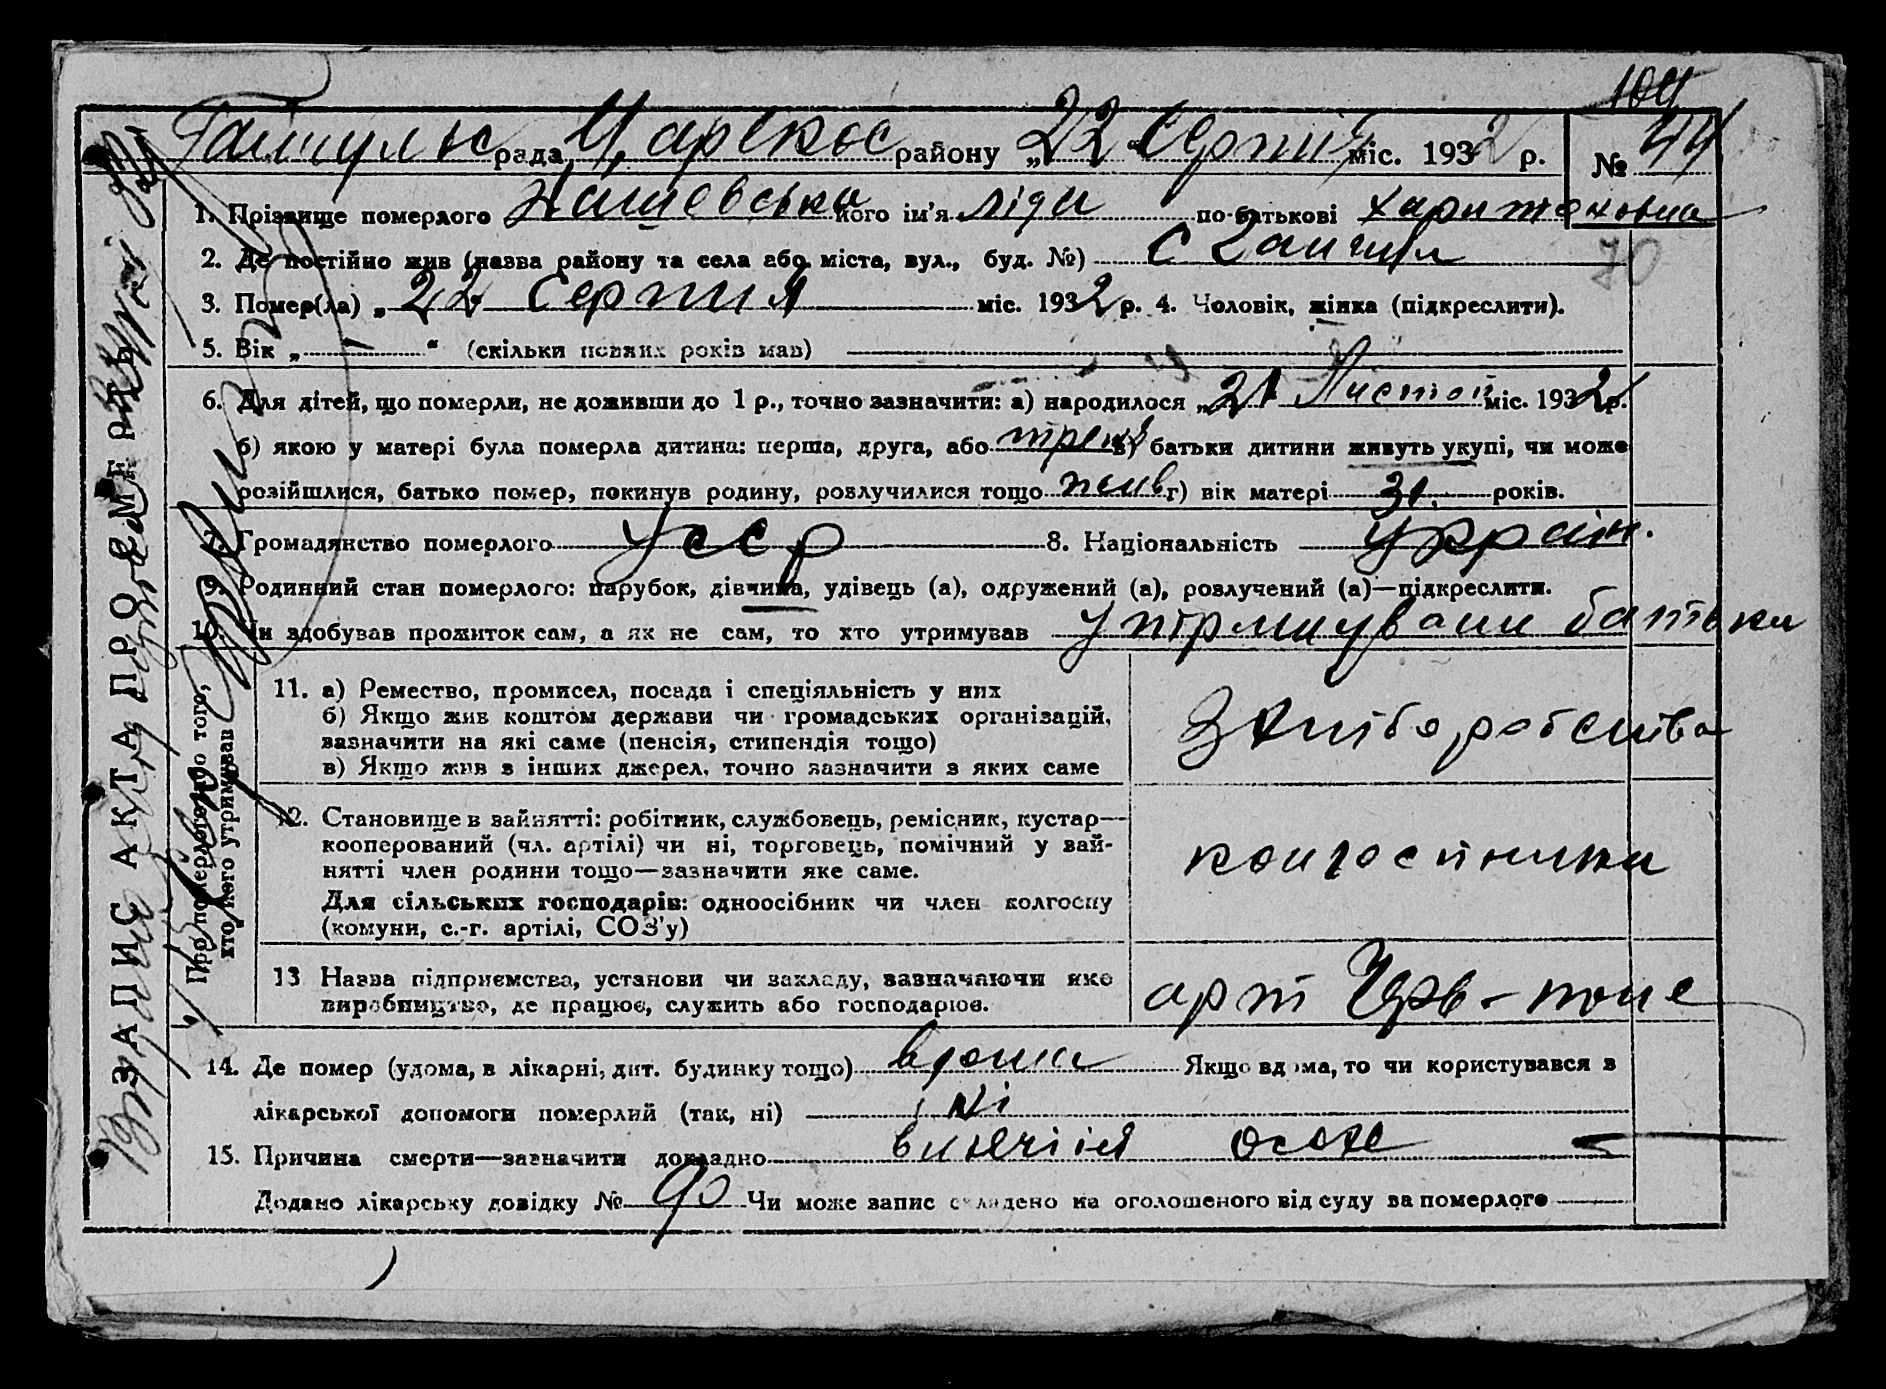 104
рада, району „22“ Серпня міс. 1932 р. № 44
1. Прізвище померлого його ім'я Ліда по-батькові Харитоновна
70
2. Де постійно жив (назва району та села або міста, вул., буд. №) с
3. Помер(ла) „22 Серпня міс. 1932 р. 4. Чоловік, жінка (підкреслити).
5. Вік „—“ (скільки повних років мав)
6. Для дітей, що померли, не доживши до 1 р., точно зазначити: а) народилося „21 Листоп міс. 1932 р.
б) якою у матері була померла дитина: перша, друга, або в) батьки дитини живуть укупі, чи може
розійшлися, батько помер, покинув родину, розлучилися тощо г) вік матері 31. років.
7. Громадянство померлого УССР 8. Національність Україн.
9. Родинний стан померлого: парубок, дівчина, удівець (а), одружений (а), розлучений (а)—підкреслити.
10. Чи здобував прожиток сам, а як не сам, то хто утримував батьки
ЗАПИС АКТА ПРО СМЕРТЬ
Про померлого або того, хто його утримував
11. а) Ремество, промисел, посада і спеціяльність у них
б) Якщо жив коштом держави чи громадських організацій,
зазначити на які саме (пенсія, стипендія тощо)
в) Якщо жив з інших джерел, точно зазначити з яких саме
з хлібо робства
12. Становище в зайнятті: робітник, службовець, ремісник, кустар—
кооперований (чл. артілі) чи ні, торговець, помічний у зай-
нятті член родини тощо—зазначити яке саме.
Для сільських господарів: одноосібник чи член колгоспу
(комуни, с.-г. артілі, СОЗ'у)
колгоспники
13 Назва підприємства, установи чи закладу, зазначаючи яке
виробництво, де працює, служить або господарює.
арт Черв-поле
14. Де помер (удома, в лікарні, дит. будинку тощо) вдома Якщо вдома, то чи користувався з
лікарської допомоги померлий (так, ні) ні
15. Причина смерти—зазначити докладно
Додано лікарську довідку № 90 Чи може запис складено на оголошеного від суду за померлого